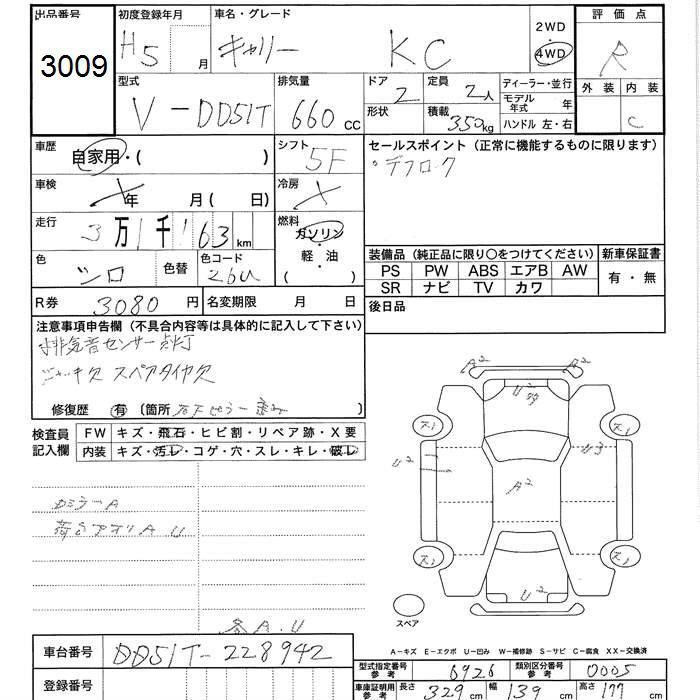 出品番号 初度登録年月 車名・グレード 2WD・4WD 評価点
3009 H5 月 キャリー KC R
外装 内装
C
型式 排気量 ドア 定員 ディーラー・並行
V-DD51T 660 cc 2 2人 モデル年式 年
形状 積載 350kg ハンドル 左・右
車歴 自家用・( ) シフト 5F
セールスポイント(正常に機能するものに限ります)
・デフロック
車検 年 月( 日) 冷房
走行 3万1千163km 燃料 ガソリン・軽・油( )
色 シロ 色替 色コード 26U
装備品(純正品に限り○をつけてください) 新車保証書
PS PW ABS エアB AW 有・無
SR ナビ TV カワ
R券 3080円 名変期限 月 日
後日品
注意事項申告欄(不具合内容等は具体的に記入して下さい)
排気音センサー点灯
ジャッキ欠 スペアタイヤ欠
修復歴 有 (箇所 )
検査員記入欄 FW キズ・飛石・ヒビ割・リペア跡・X要
内装 キズ・汚レ・コゲ・穴・スレ・キレ・破レ
A2 A2
U2
U2 U3
A2
U2
ミラーA
A.U
A.U
スペア
A-キズ E-エクボ U-凹み W-補修跡 S-サビ C-腐食 XX-交換済
車台番号 DD51T-228942
型式指定番号 参考 6926 類別区分番号 参考 0005
登録番号
車庫証明用 参考 長さ 329cm 幅 139cm 高さ 177cm